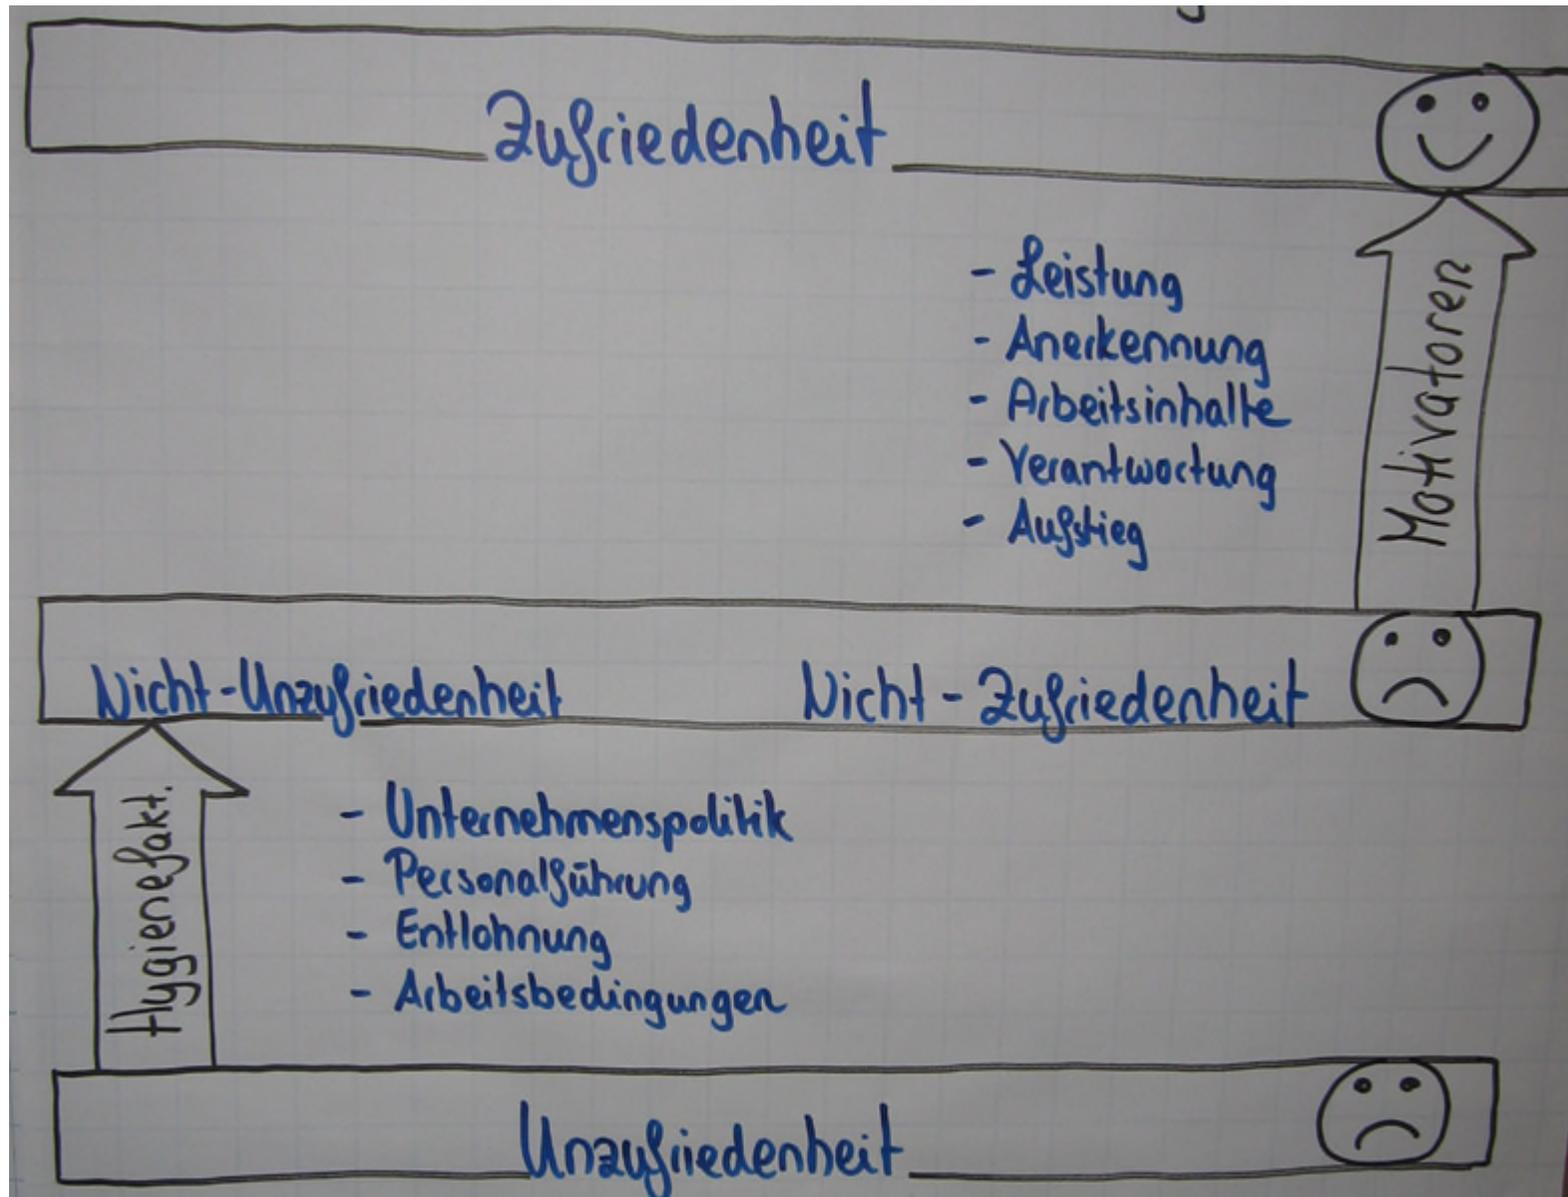 Zufriedenheit
- Leistung
- Anerkennung
- Arbeitsinhalte
- Verantwortung
- Aufstieg
Motivatoren
Nicht-Unzufriedenheit
Nicht-Zufriedenheit
Hygienefakt.
- Unternehmenspolitik
- Personalführung
- Entlohnung
- Arbeitsbedingungen
Unzufriedenheit